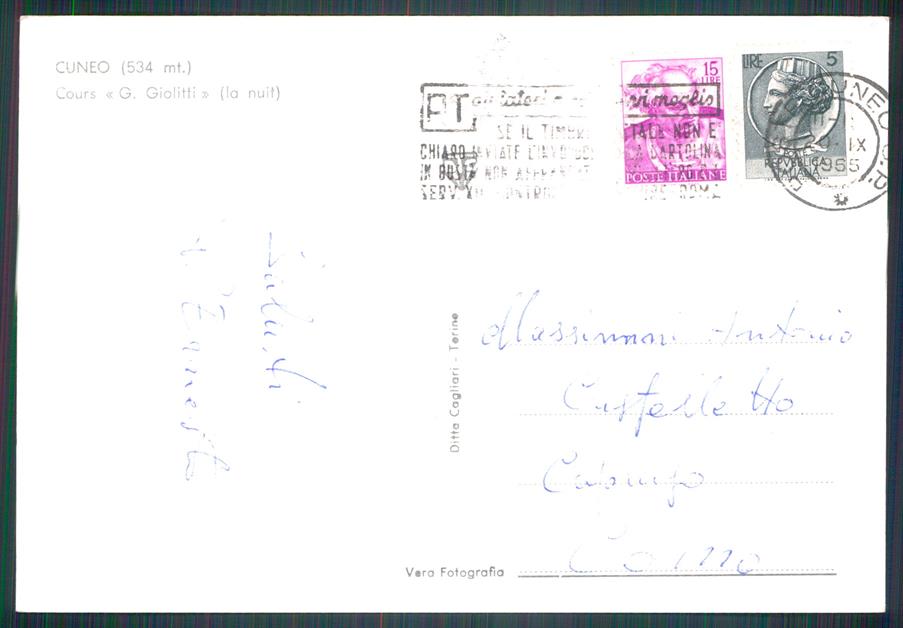 CUNEO (534 mt.)
Cours « G. Giolitti » (la nuit)
PT aiutateci a servirvi meglio
SE IL TIMBRO TALE NON E
CHIARO INVIATE L'INVOLUCRO LA CARTOLINA
IN BUSTA NON AFFRANCATA
SERV. XII CONTROLLO ROMA
15 LIRE
POSTE ITALIANE
LIRE 5
POSTE
REPVBBLICA
ITALIANA
CUNEO
IX
1965
Saluti
Ernesto
Ditta Cagliari - Torino
Antonio
Castelletto
Como
Vera Fotografia